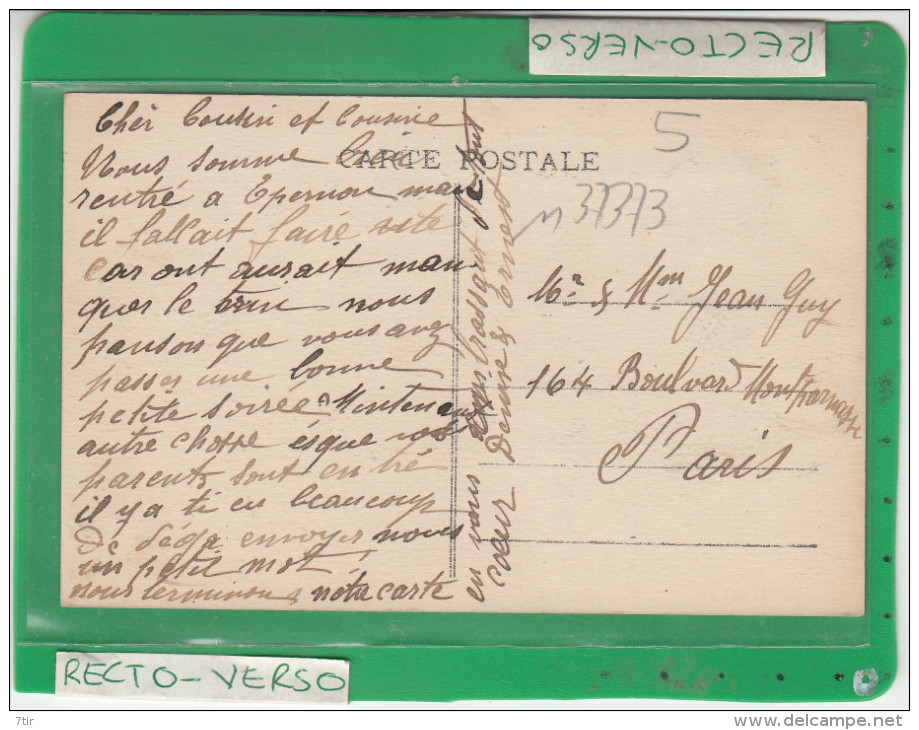 RECTO-VERSO
Cher Cousin et Cousine
CARTE POSTALE
5
Nous somme bien
rentré a Epernon mau
il fallait faire vite
m 37373
car ont aurait man
quer le trin nous
pansons que vous avez
passer une bonne
petite soirée Mintenant
autre chosse ésque vos
parents sont entré
il y a ti eu beaucoup
De déga envoyer nous
un petit mot
nous terminons notre carte
en vous embrassant de tous
coeur Denise & Ernest
Mr & Mm Jean Guy
164 Boulvard Montparnasse
Paris
RECTO-VERSO
7tir
delcampe.net